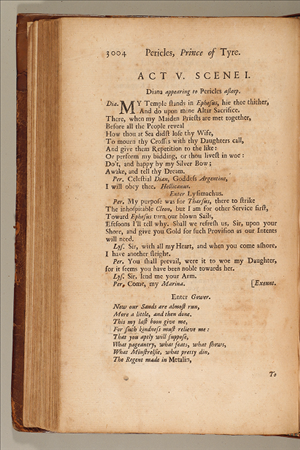 3004 Pericles, Prince of Tyre.
ACT V. SCENE I.
Diana appearing to Pericles asleep.
Dia. MY Temple stands in Ephesus, hie thee thither,
And do upon mine Altar Sacrifice.
There, when my Maiden Priests are met together,
Before all the People reveal
How thou at Sea didst lose thy Wife,
To mourn thy Crosses with thy Daughters call,
And give them Repetition to the like:
Or perform my bidding, or thou livest in woe:
Do't, and happy by my Silver Bow;
Awake, and tell thy Dream.
Per. Celestial Dian, Goddess Argentine,
I will obey thee. Hellicanus.
Enter Lysimachus.
Per. My purpose was for Tharsus, there to strike
The inhospitable Cleon, but I am for other Service first,
Toward Ephesus turn our blown Sails,
Eftsoons I'll tell why. Shall we refresh us, Sir, upon your
Shore, and give you Gold for such Provision as our Intents
will need.
Lys. Sir, with all my Heart, and when you come ashore,
I have another sleight.
Per. You shall prevail, were it to woe my Daughter,
for it seems you have been noble towards her.
Lys. Sir, lend me your Arm.
Per. Come, my Marina. [Exeunt.
Enter Gower.
Now our Sands are almost run,
More a little, and then done.
This my last boon give me,
For such kindness must relieve me:
That you aptly will suppose,
What pageantry, what feats, what shows,
What Minstrelsie, what pretty din,
The Regent made in Metalin,
To